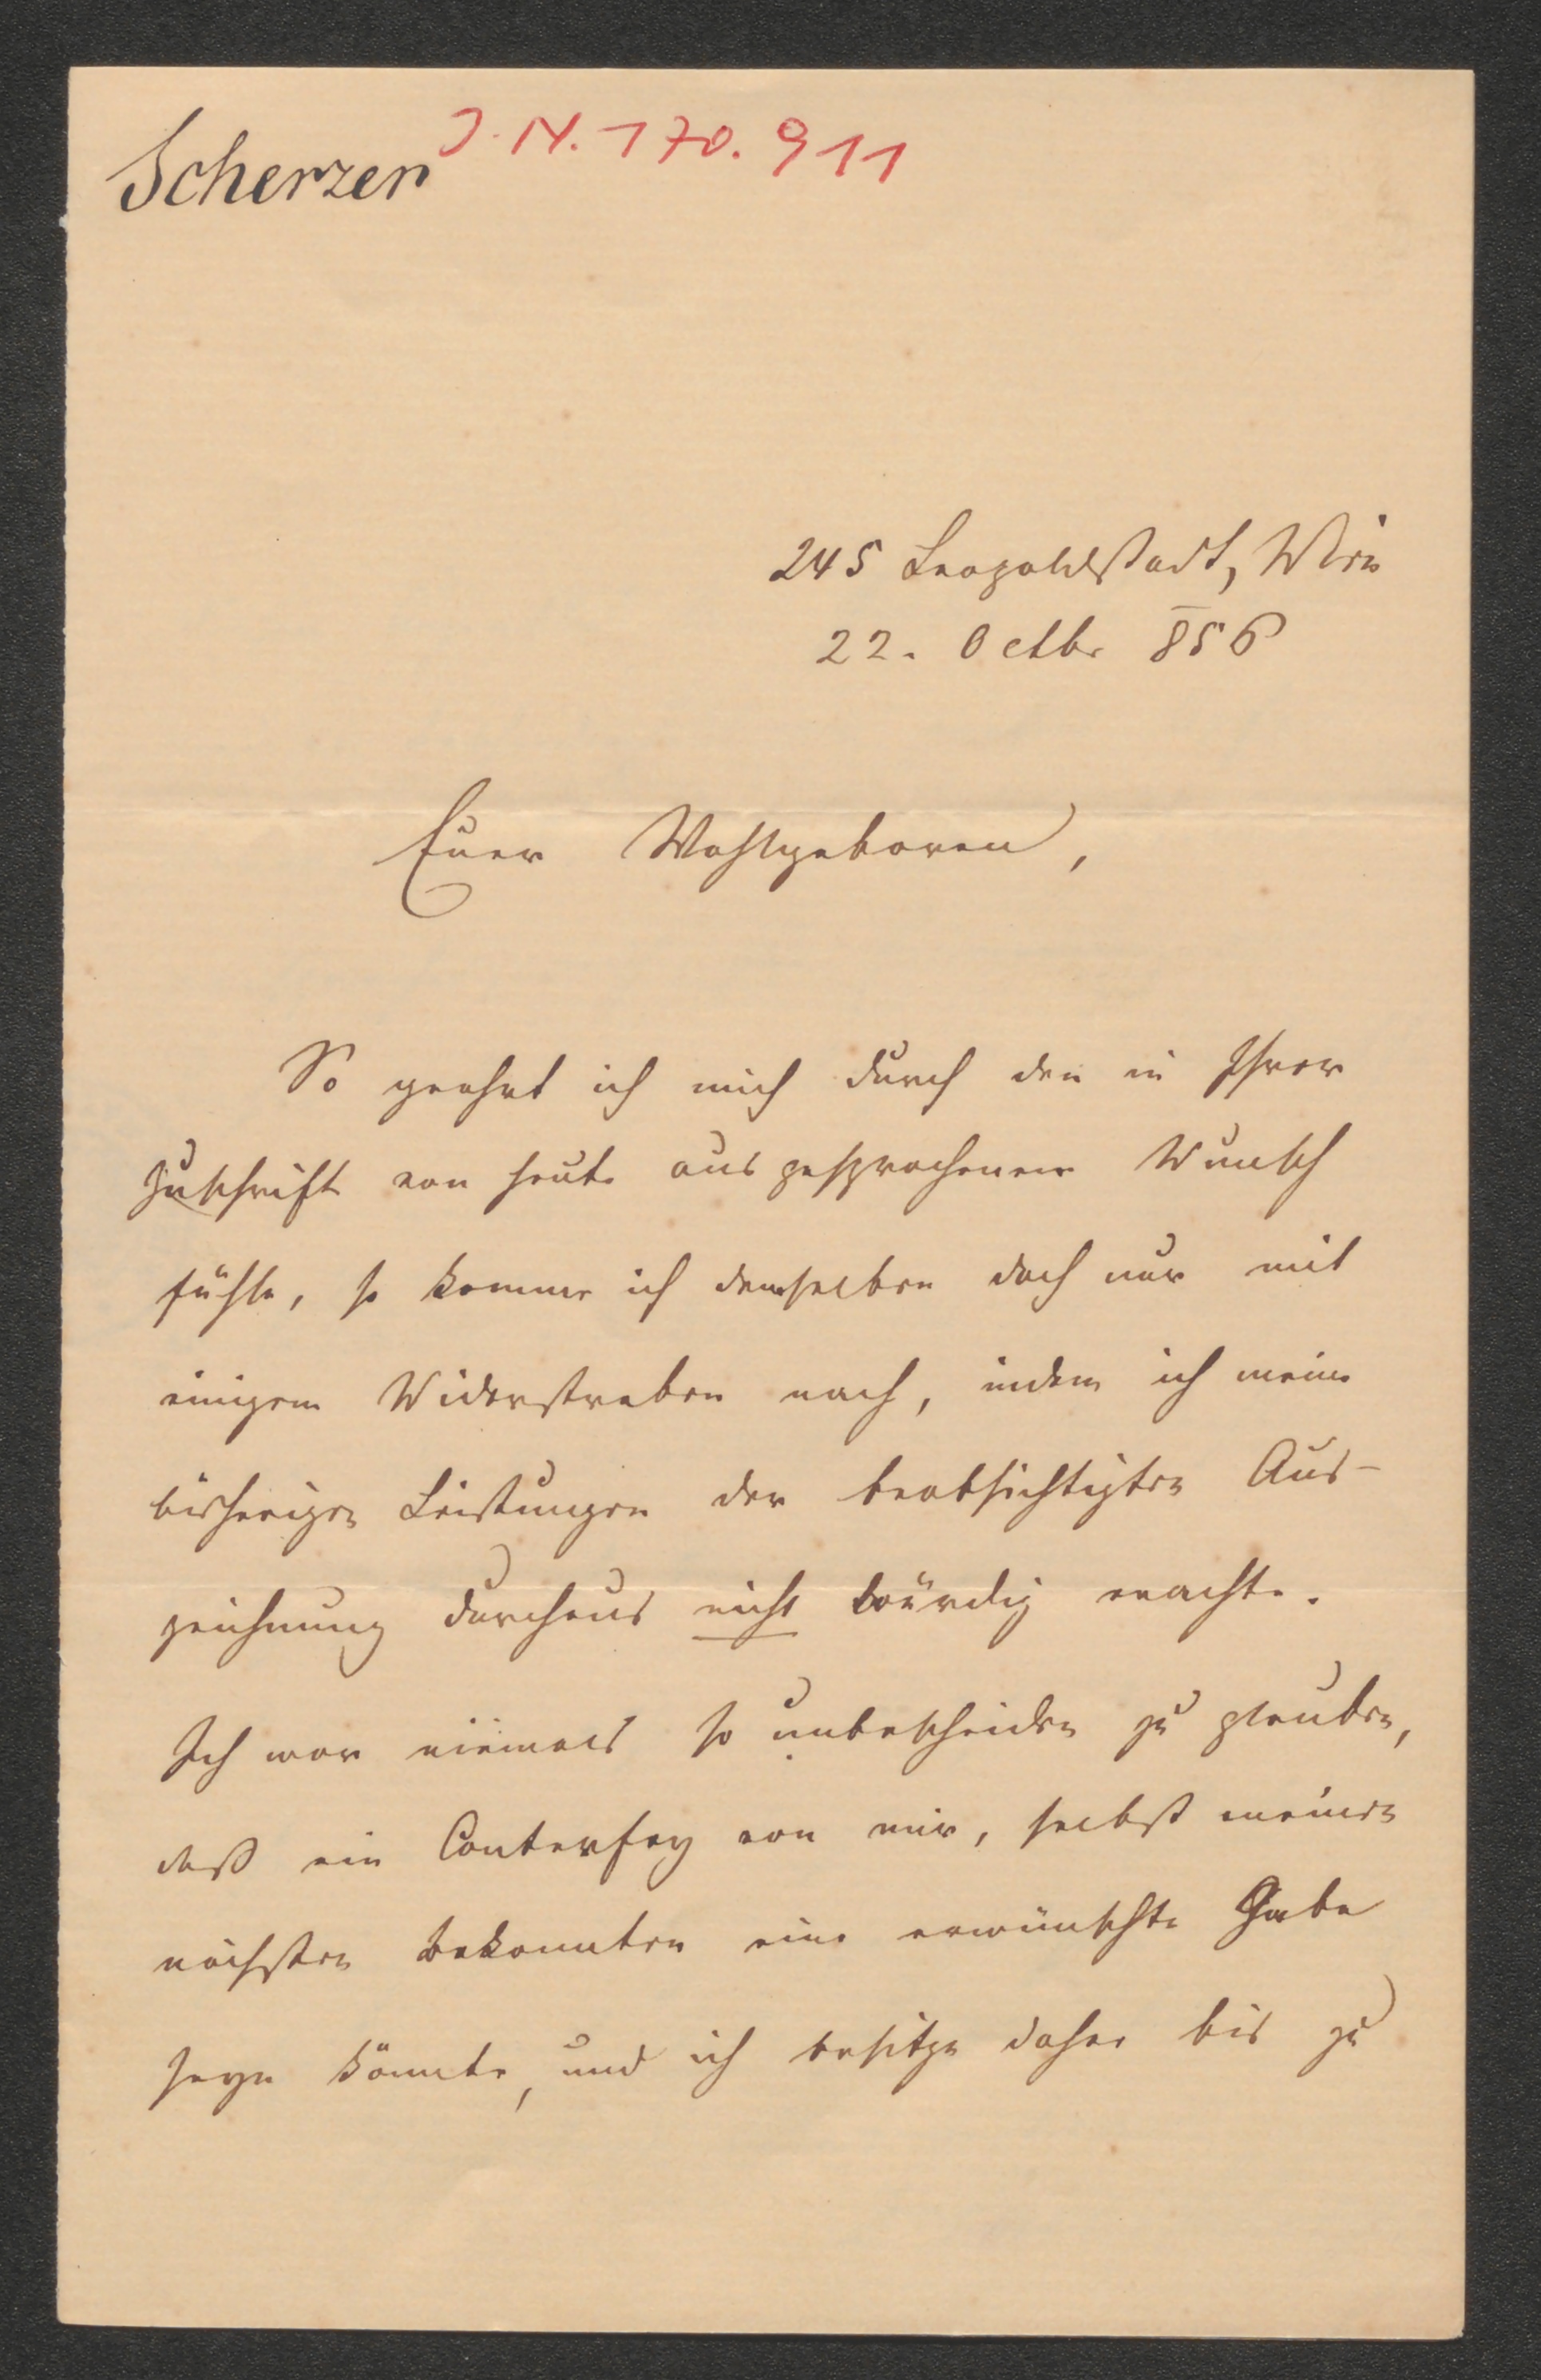 Scherzer
J. N. 170.911
245 Leopoldstadt, Wien
22. Octbr 856
Euer Wohlgeboren,
So geehrt ich mich durch den in Ihrer
Zuschrift von heute ausgesprochenen Wunsch
fühle, so komme ich demselben doch nur mit
einigem Widerstreben nach, indem ich meine
bisherigen Leistungen der beabsichtigten Aus-
zeichnung durchaus nicht würdig erachte.
Ich war niemals so unbescheiden zu glauben,
daß ein Conterfey von mir, selbst meinen
nächsten Bekannten eine erwünschte Gabe
seyn könnte, und ich besitze daher bis zu